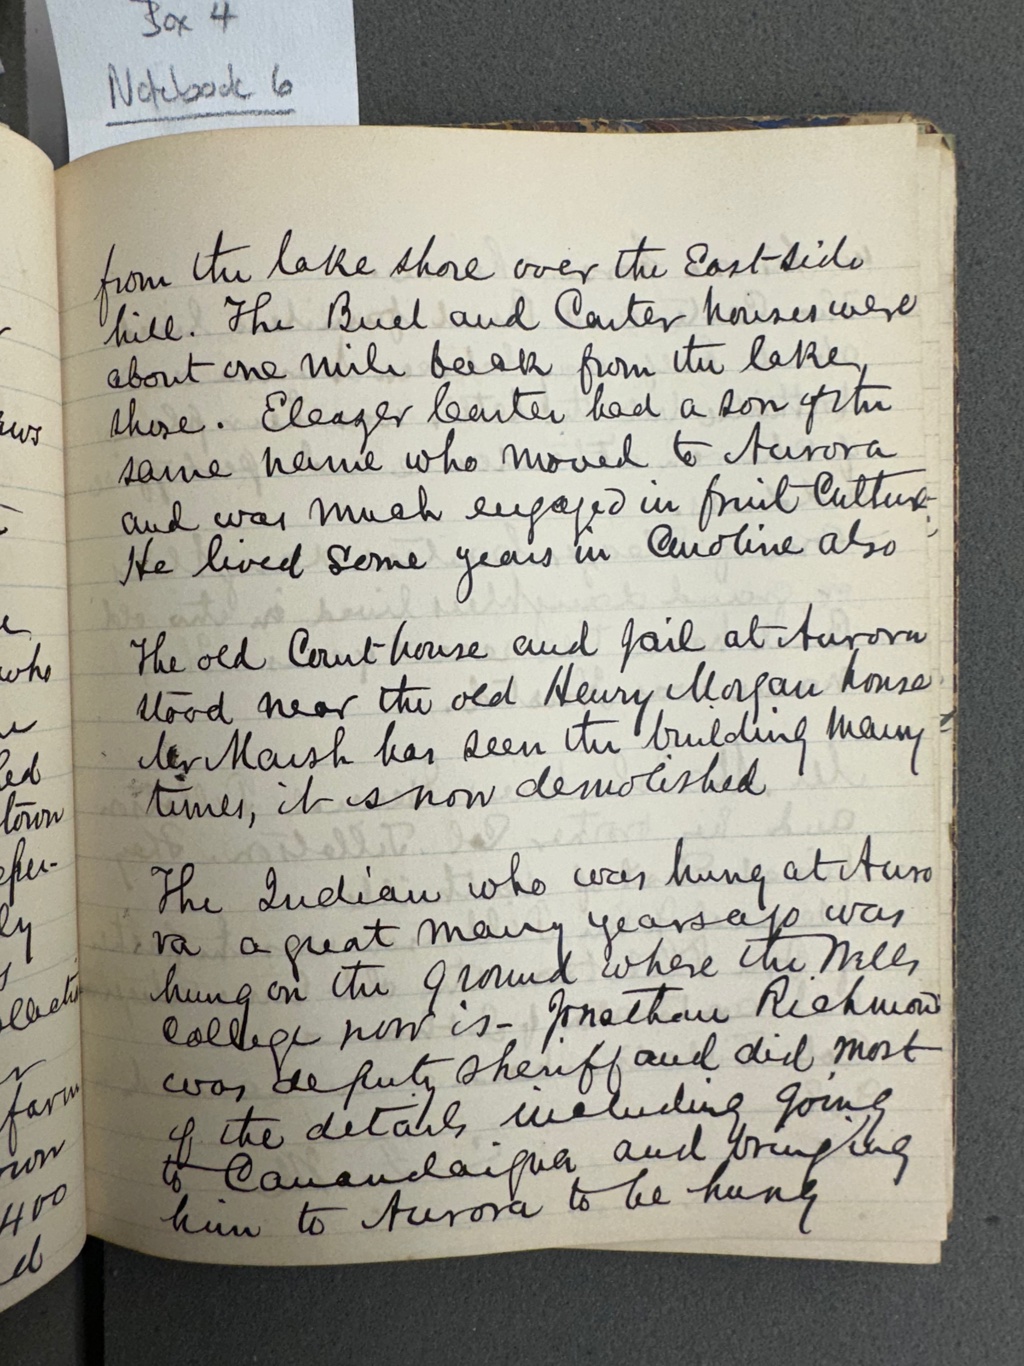 Box 4
Notebook 6
from the lake shore over the East side
hill. The Buel and Carter houses were
about one mile back from the lake
shore. Eleazer Carter had a son of the
same name who moved to Aurora
and was much engaged in fruit Culture
He lived Some years in Caroline also
The old Court house and jail at Aurora
stood near the old Henry Morgan house
Mr Marsh has seen the building many
times, it is now demolished
The Indian who was hung at Auro
ra a great many years ago was
hung on the ground where the Wells
College now is - Jonathan Richmond
was deputy sheriff and did most
of the details including going
to Canandaigua and bringing
him to Aurora to be hung
who
town
ly
farm
400